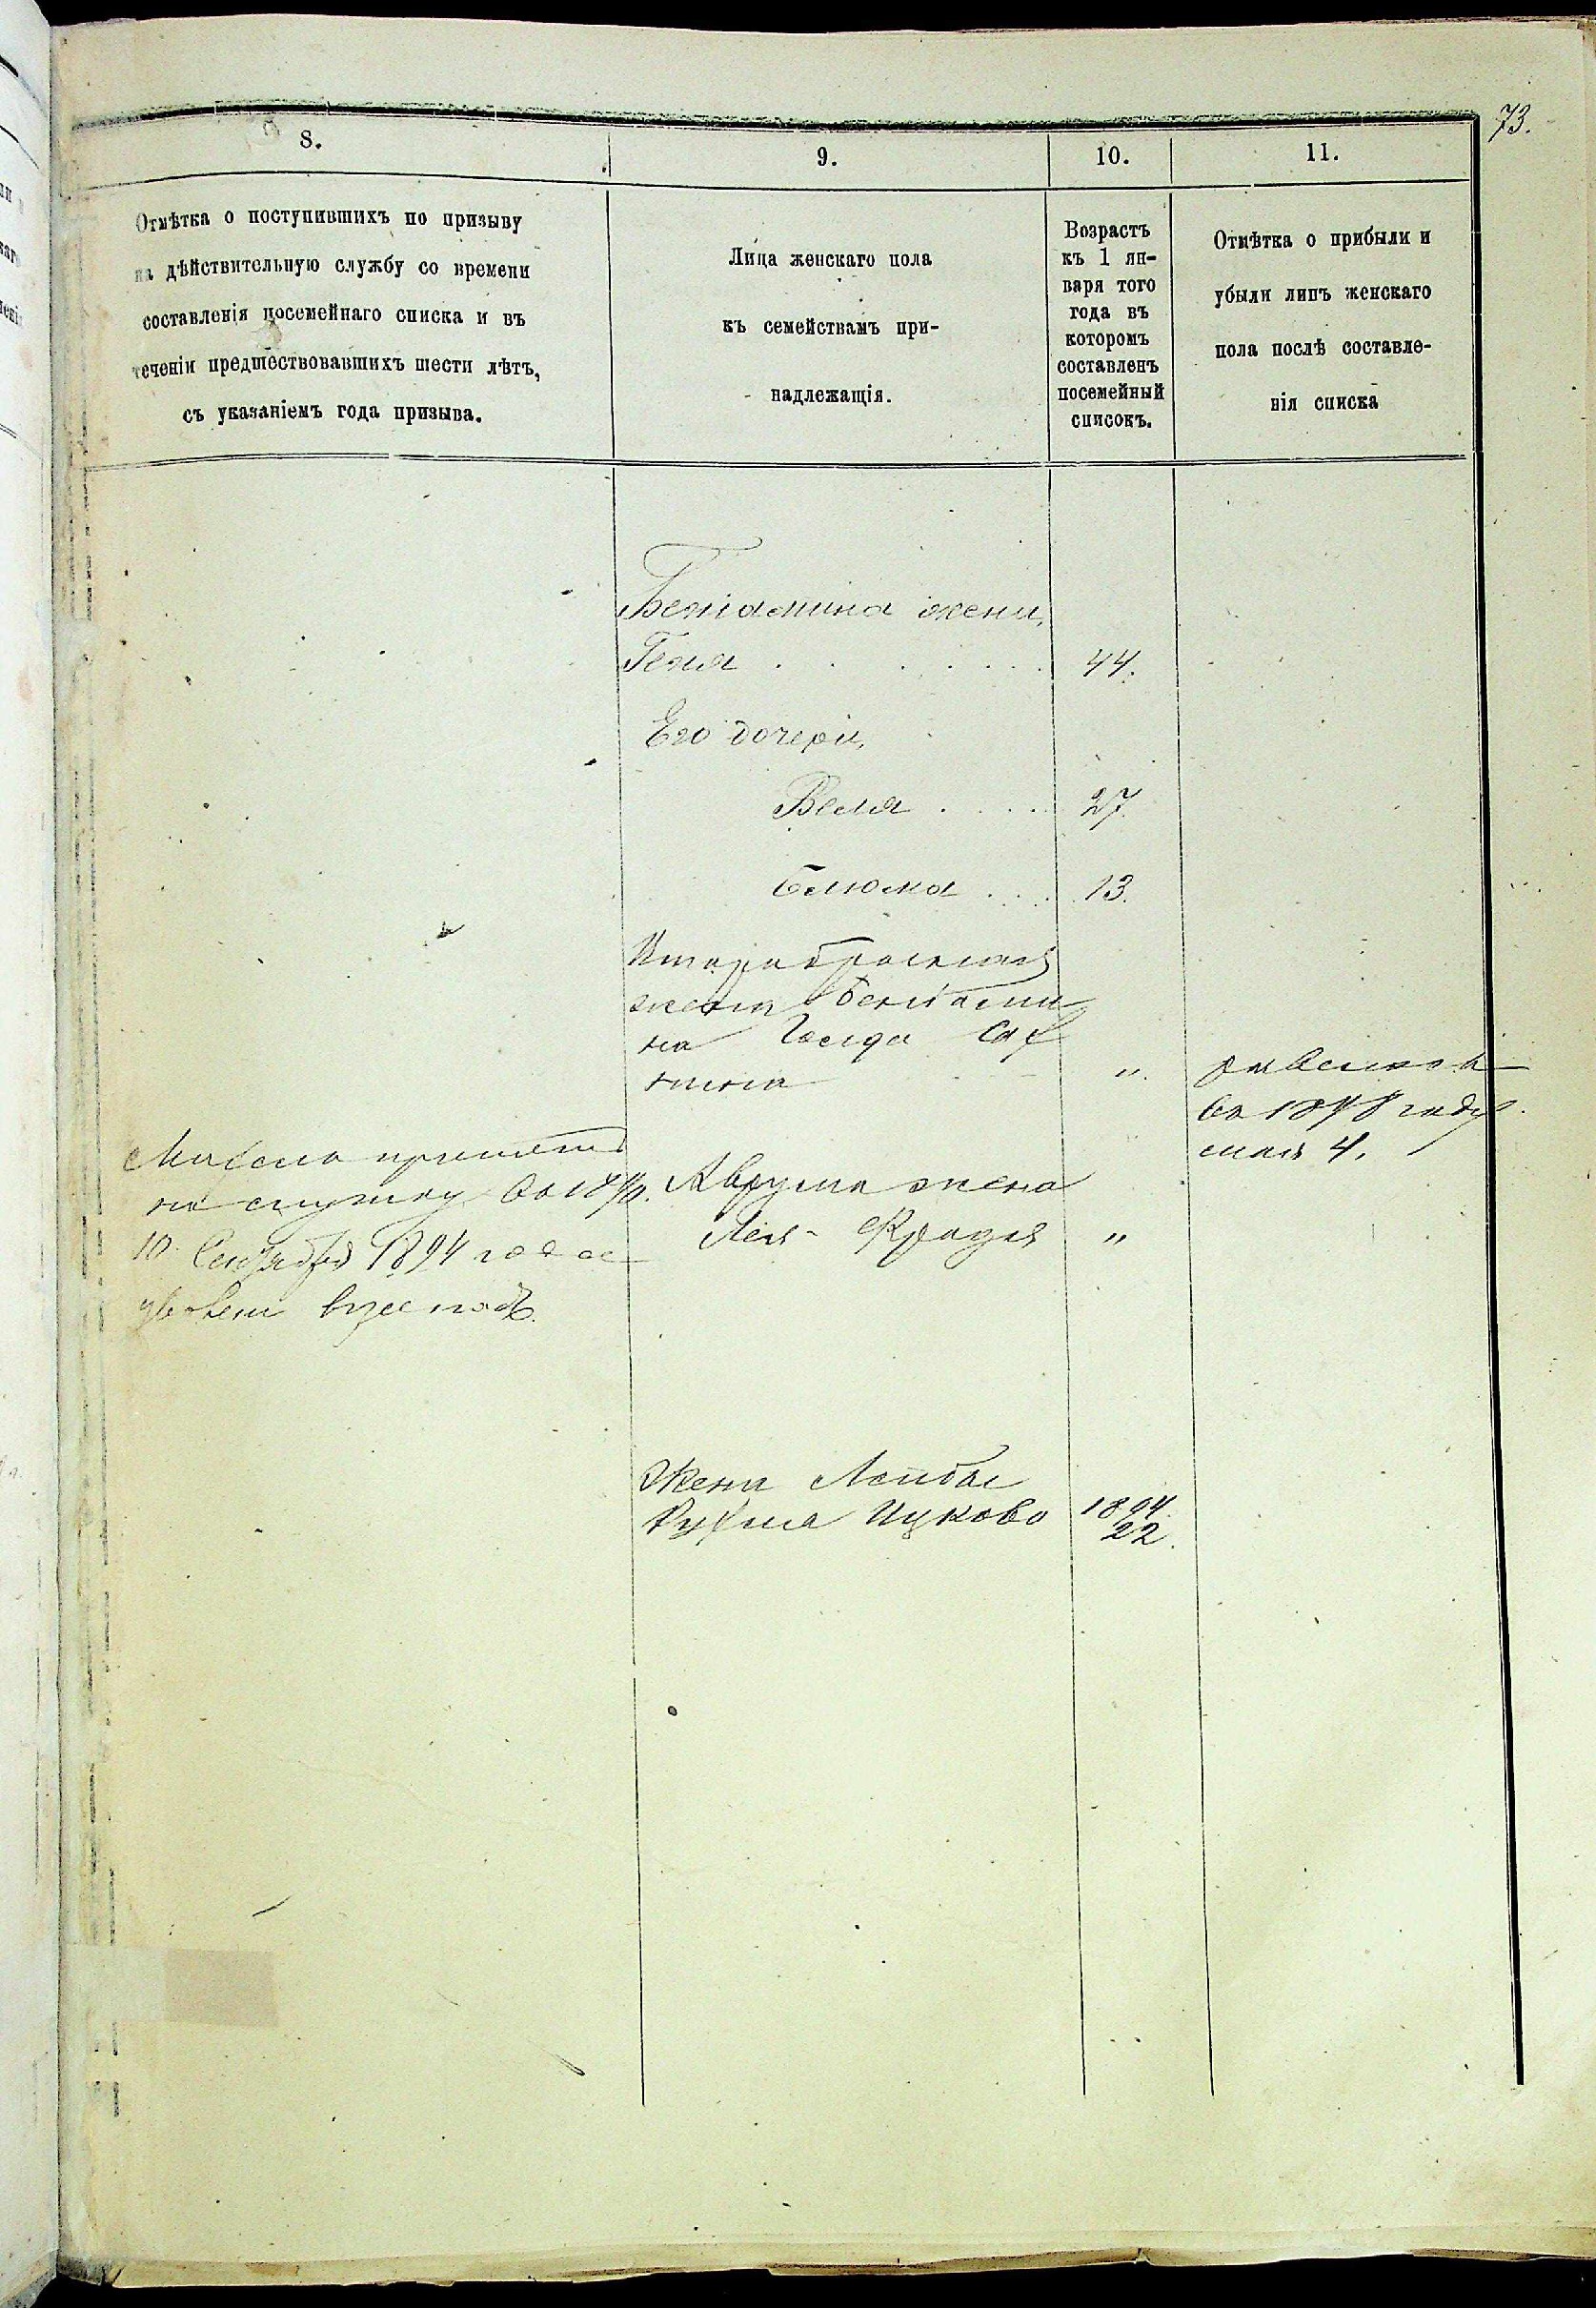 73.
8.
9.
10.
11.
Отмѣтка о поступившихъ по призыву
на дѣйствительную службу со времени
составленія посемейнаго списка и въ
теченіи предшествовавшихъ шести лѣтъ,
съ указаніемъ года призыва.
Лица женскаго пола
къ семействамъ при-
надлежащія.
Возрастъ
къ 1 ян-
варя того
года въ
которомъ
составленъ
посемейный
списокъ.
Отмѣтка о прибыли и
убыли лицъ женскаго
пола послѣ составле-
нія списка
Беніамина жена,
Геня 44.
Его дочери,
Веля 27.
Блюма 13.
Второбрачная
жена Беніами
на Голда
"
въ 1878 году
мая 4.
Михель принятъ
на службу въ
10 Сентября 1894 года
уволенъ въ запасъ.
Аврума жена
Лея-Фрадля "
Жена Лейбы
Рухля Ицкова 1894.
22.